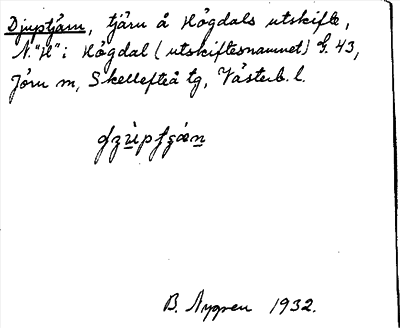 Djuptjärn, tjärn å Högdals utskifte,
N. "H" i Högdal (utskiftesnamnet) G. 43,
Jörn sn, Skellefteå tg, Västerb. l.
B. Nygren 1932.